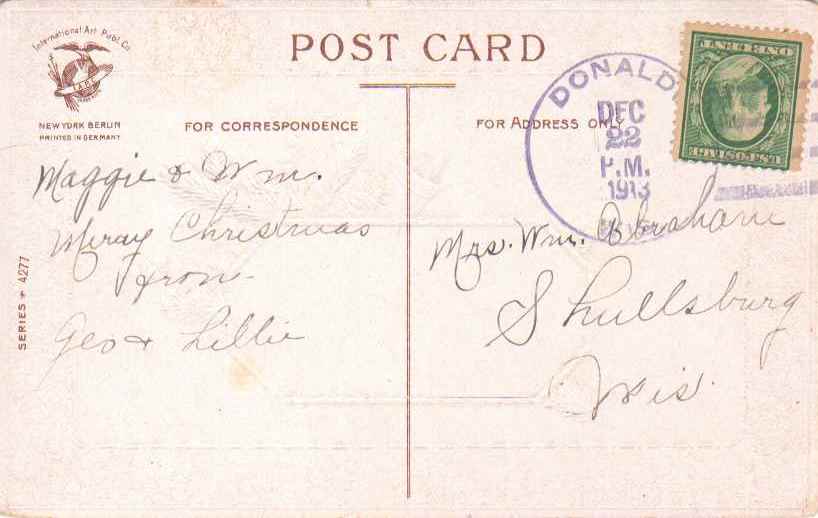 International Art Publ. Co.
I.A.P.C.
NEW YORK BERLIN
PRINTED IN GERMANY
POST CARD
FOR CORRESPONDENCE
FOR ADDRESS ONLY
DONALD
DEC
22
P.M.
1913
U.S.POSTAGE
ONE CENT
Maggie & Wm.
Meray Christmas
from
Geo & Lillie
SERIES 4277
Mrs. Wm. Abraham
Shullsburg
Wis.